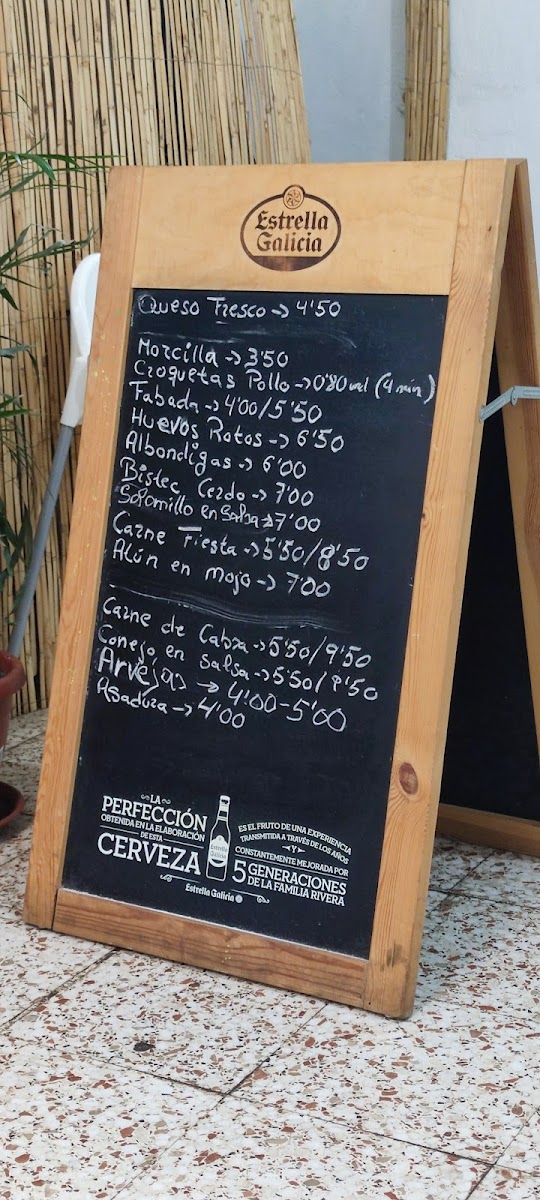 Estrella
Galicia
Queso Fresco → 4'50
Morcilla → 3'50
Croquetas Pollo → 0'80 und (4 min)
Fabada → 4'00/5'50
Huevos Rotos → 6'50
Albondigas → 6'00
Bistec Cerdo → 7'00
Solomillo en Salsa → 7'00
Carne Fiesta → 5'50/8'50
Atún en mojo → 7'00
Carne de Cabra → 5'50/9'50
Conejo en Salsa → 5'50/
Arvejas → 4'00-5'00
Asadura → 4'00
LA
PERFECCIÓN
OBTENIDA EN LA ELABORACIÓN
DE ESTA
CERVEZA
Estrella
Galicia
ES EL FRUTO DE UNA EXPERIENCIA
TRANSMITIDA A TRAVÉS DE LOS AÑOS
Y
CONSTANTEMENTE MEJORADA POR
5 GENERACIONES
DE LA FAMILIA RIVERA
Estrella Galicia